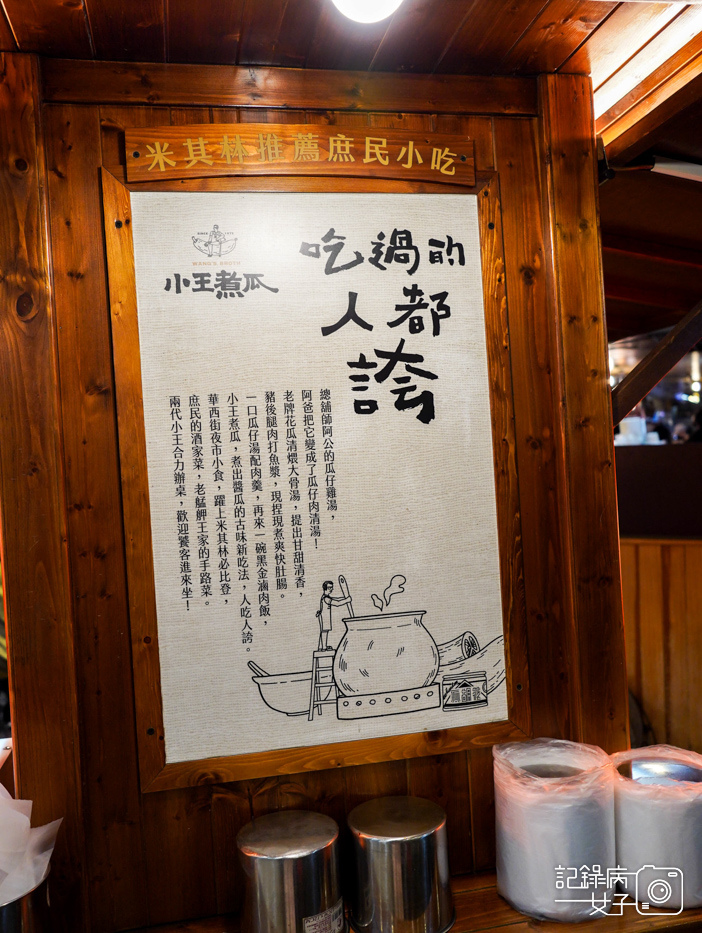 米其林推薦庶民小吃
SINCE 1975
WANG'S BROTH
小王煮瓜
吃過的
人都
誇
總舖師阿公的瓜仔雞湯，
阿爸把它變成了瓜仔肉清湯！
老牌花瓜清燉大骨湯，提出甘甜清香，
豬後腿肉打魚漿，現捏現煮爽快肚腸。
一口瓜仔湯配肉羹，再來一碗黑金滷肉飯，
小王煮瓜，煮出醬瓜的古味新吃法，人吃人誇。
華西街夜市小食，躍上米其林必比登，
庶民的酒家菜，老艋舺王家的手路菜。
兩代小王合力辦桌，歡迎饕客進來坐！
記錄病
女子